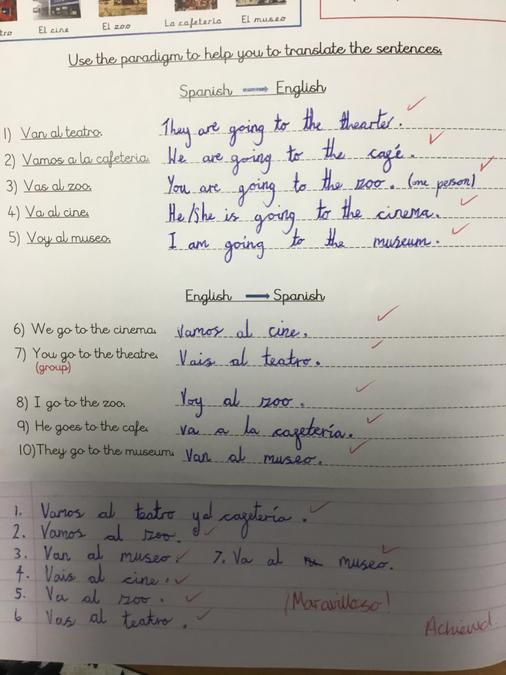 tro El cine El zoo La cafetería El museo
Use the paradigm to help you to translate the sentences.
Spanish English
1) Van al teatro. They are going to the thearter.
2) Vamos a la cafeteria. We are going to the cagé.
3) Vas al zoo. You are going to the zoo. (one person)
4) Va al cine. He/She is going to the cinema.
5) Voy al museo. I am going to the museum.
English Spanish
6) We go to the cinema. Vamos al cine.
7) You go to the theatre. Vais al teatro.
(group)
8) I go to the zoo. Voy al zoo.
9) He goes to the cafe. va a la cagetería.
10) They go to the museum. Van al museo.
1. Vamos al teatro y cagetería.
2. Vamos al zoo.
3. Van al museo. 7. Va al museo.
4. Vais al cine.
5. Va al zoo.
6 Vas al teatro.
¡Maravilloso!
Achieved.